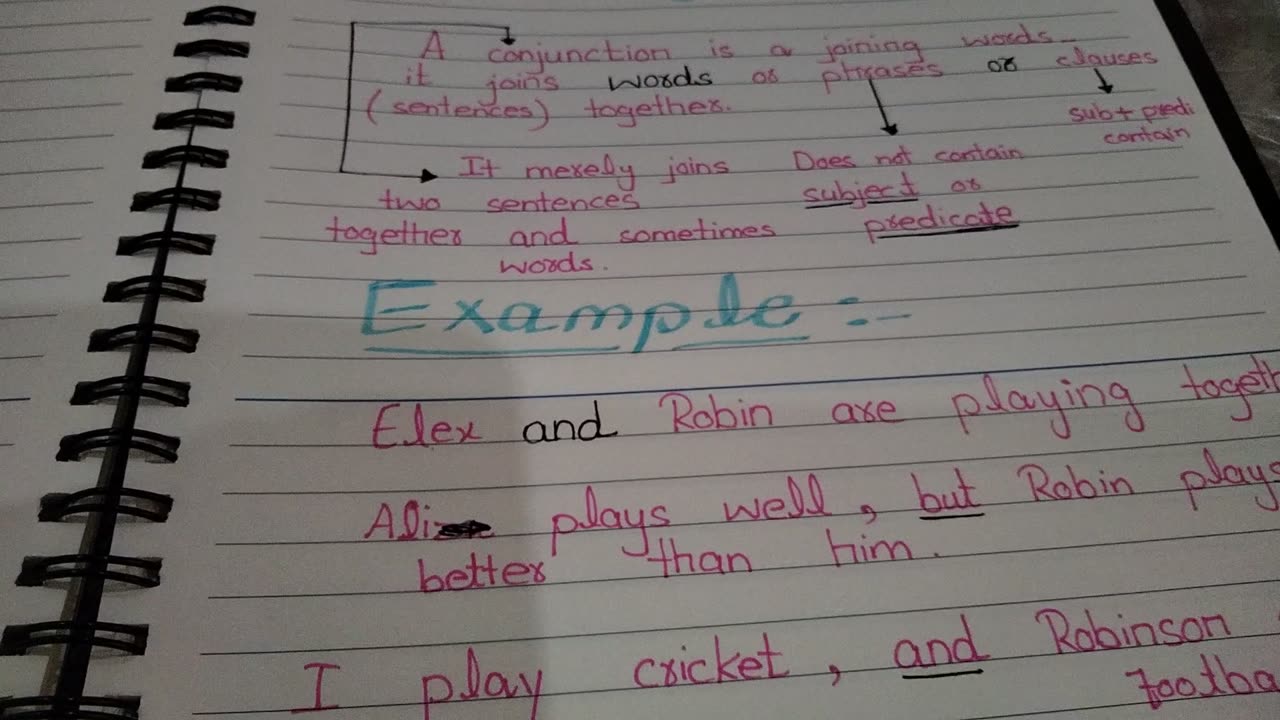 A conjunction is a joining words
it joins words or phrases or clauses
(sentences) together.
sub + predi
contain
It merely joins Does not contain
two sentences subject or
together and sometimes predicate
words.
Example :-
Elex and Robin are playing togeth
Ali plays well, but Robin plays
better than him.
I play cricket, and Robinson
footba